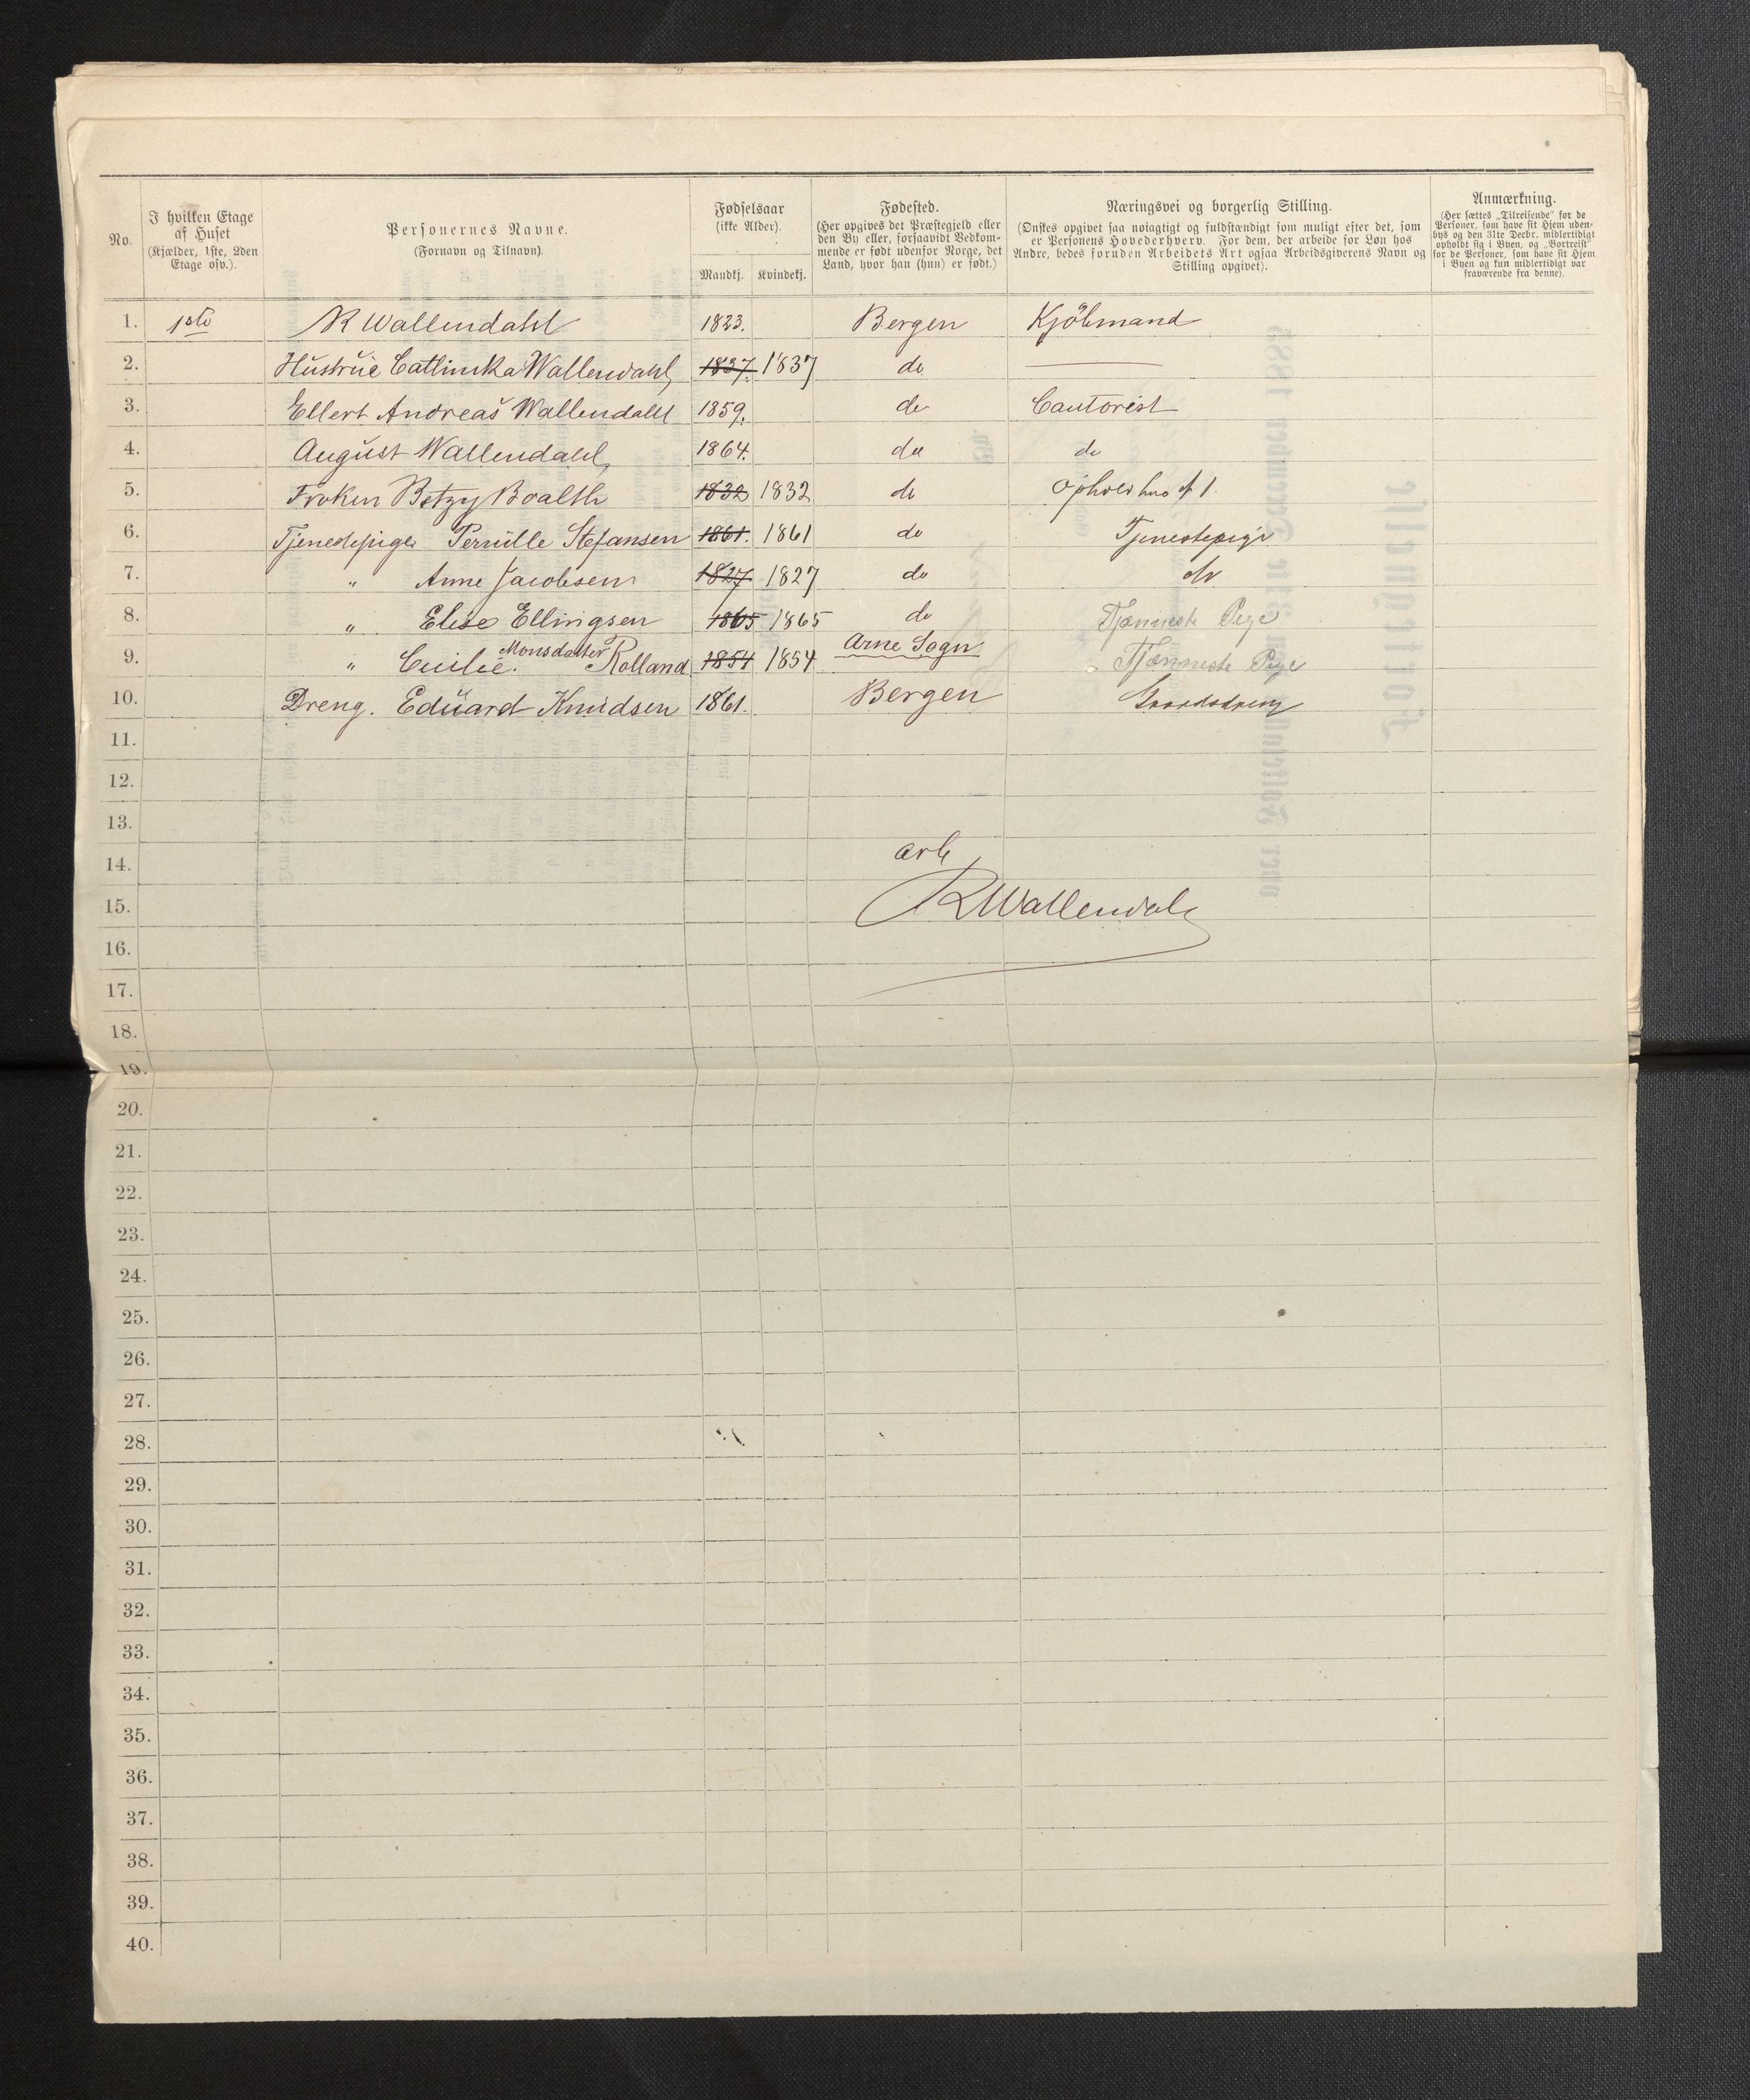 No.
I hvilken Etage
af Huset
(Kjælder, 1ste, 2den
Etage osv.).
Personernes Navne.
(Fornavn og Tilnavn)
Fødselsaar
(ikke Alder).
Mandkj. Kvindekj.
Fødested.
(Her opgives det Præstegjeld eller
den By eller, forsaavidt Vedkom-
mende er født udenfor Norge, det
Land, hvor han (hun) er født.)
Næringsvei og borgerlig Stilling.
(Ønskes opgivet saa nøiagtigt og fuldstændigt som muligt efter det, som
er Personens Hovederhverv. For dem, der arbeide for Løn hos
Andre, bedes foruden Arbeidets Art ogsaa Arbeidsgiverens Navn og
Stilling opgivet).
Anmærkning.
(Her sættes „Tilreisende" for de
Personer, som have sit Hjem uden-
bys og den 31te Decbr. midlertidigt
opholdt sig i Byen, og „Bortreist"
for de Personer, som have sit Hjem
i Byen og kun midlertidigt var
fraværende fra denne).
1. 1ste R Wallendahl 1823. Bergen Kjöbmand
2. Hustrue Cathinka Wallendahl, 1837. 1837 do
3. Ellert Andreas Wallendahl 1859. do Contorist
4. August Wallendahl, 1864. do do
5. Frøken Betzy Boalth 1832 1832 do Ophold hos № 1.
6. Tjenestepige Pernille Stefansen 1861. 1861 do Tjenestepige
7. " Anne Jacobsen 1827 1827 do do
8. " Elise Ellingsen 1865 1865 do Tjænneste Pige
9. " Cecilie. Monsdatter Rolland 1854 1854 Arne Sogn Tjænneste Pige
10. Dreng. Eduard Knudsen 1861. Bergen Gaardsdreng
11.
12.
13.
14.
15. R Wallendahl
16.
17.
18.
19.
20.
21.
22.
23.
24.
25.
26.
27.
28.
29.
30.
31.
32.
33.
34.
35.
36.
37.
38.
39.
40.